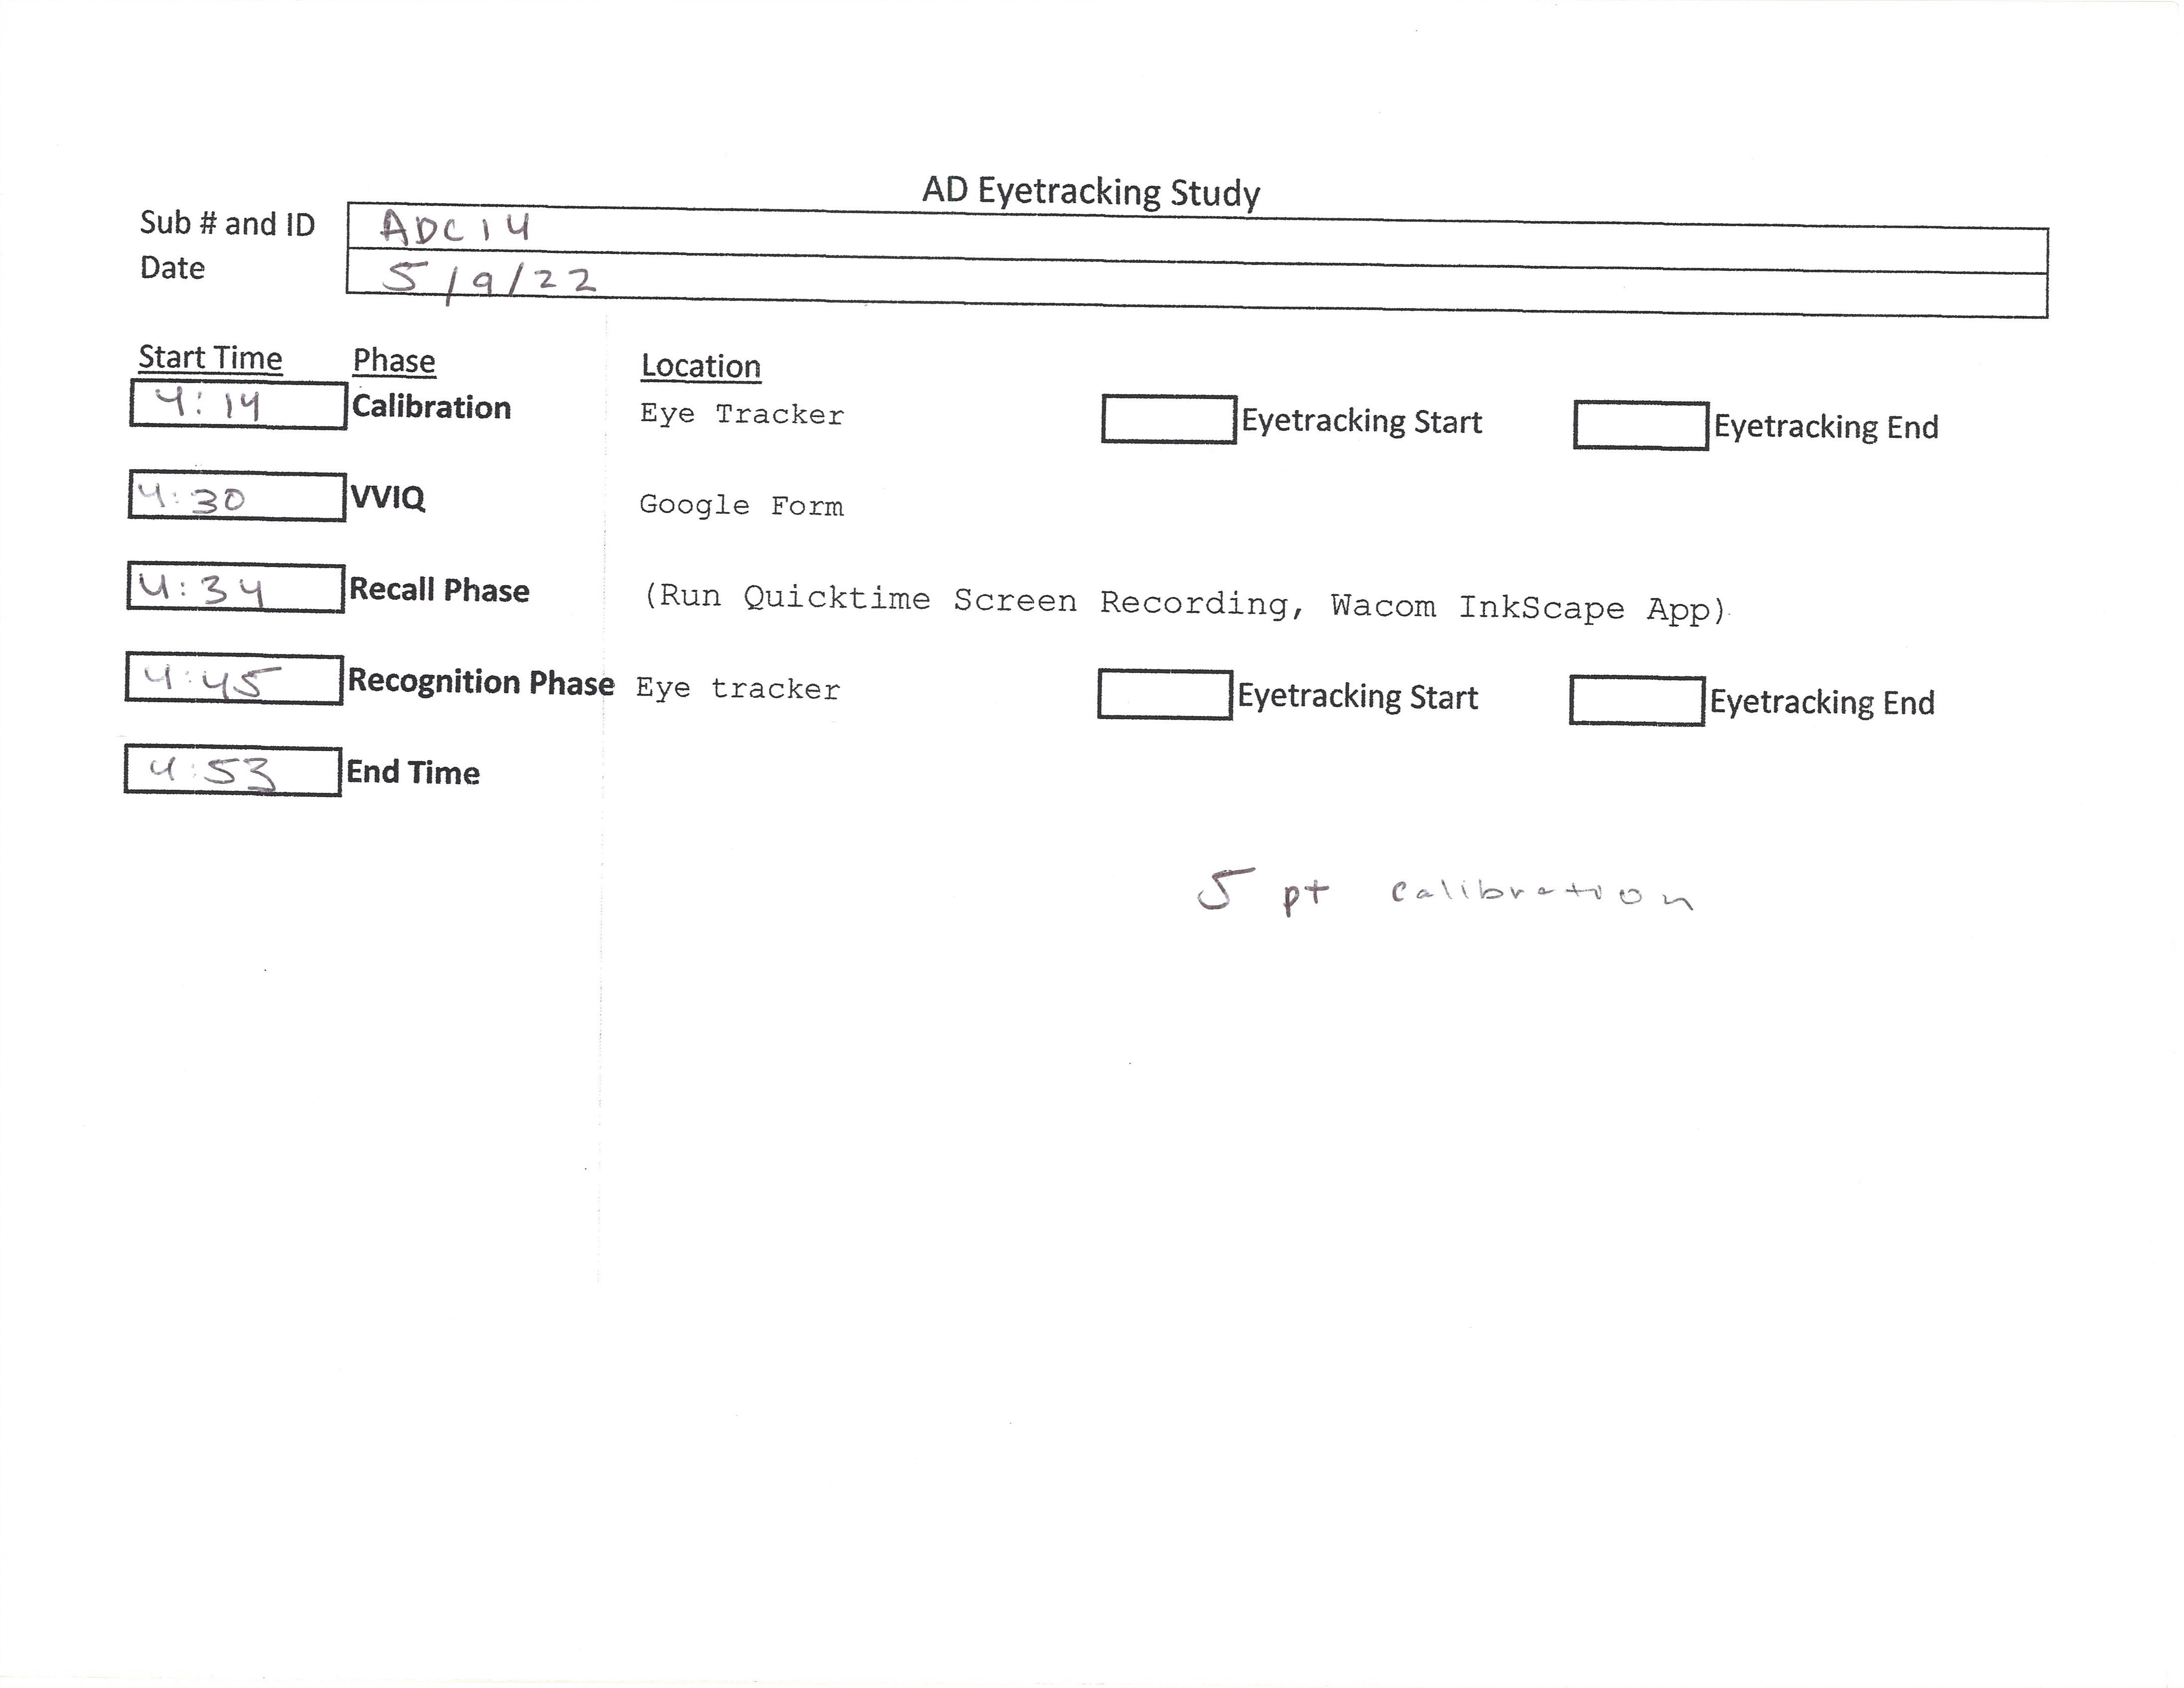 AD Eyetracking Study
Sub # and ID ADC14
Date 5/9/22
Start Time Phase Location
4:14 Calibration Eye Tracker Eyetracking Start Eyetracking End
4:30 VVIQ Google Form
4:34 Recall Phase (Run Quicktime Screen Recording, Wacom InkScape App)
4:45 Recognition Phase Eye tracker Eyetracking Start Eyetracking End
4:53 End Time
5 pt calibration